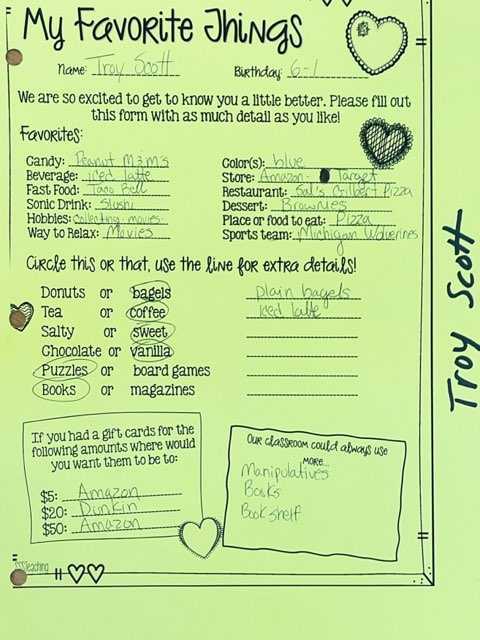 My Favorite Things
Name: Troy Scott Birthday: 6-1
We are so excited to get to know you a little better. Please fill out
this form with as much detail as you like!
Favorites:
Candy: Peanut M&M's
Beverage: iced latte
Fast Food: Taco Bell
Sonic Drink: Slushi
Hobbies: collecting movies
Way to Relax: Movies
Color(s): blue
Store: Amazon - Target
Restaurant: Sal's Gilbert Pizza
Dessert: Brownies
Place or food to eat: Pizza
Sports team: Michigan Wolverines
Circle this or that, use the line for extra details!
Donuts or bagels plain bagels
Tea or coffee iced latte
Salty or sweet
Chocolate or vanilla
Puzzles or board games
Books or magazines
If you had a gift cards for the
following amounts where would
you want them to be to:
$5: Amazon
$20: Dunkin
$50: Amazon
Our classroom could always use
more...
Manipulatives
Books
Bookshelf
Troy Scott
SSSTeaching